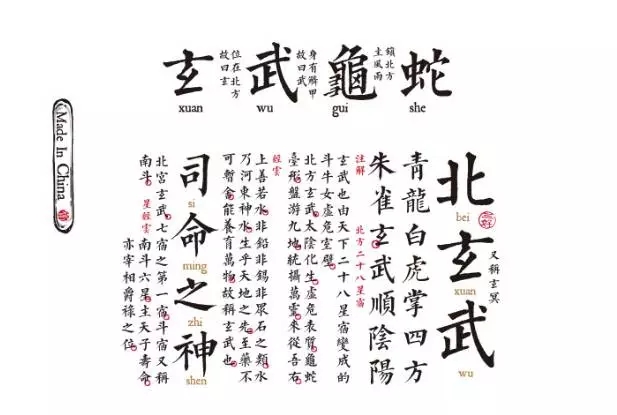 玄
xuan
位在北方
故曰玄
武
wu
身有鱗甲
故曰武
龜
gui
鎮北方
主風雨
蛇
she
Made In China
北玄武
bei
xuan
wu
又稱玄冥
青龍白虎掌四方
朱雀玄武順陰陽
注解 北方二十八星宿
玄武也由天下二十八星宿變成的
斗牛女虛危室壁
北方玄武太陰化生虛危表質龜蛇
臺形盤游九地統攝萬靈來從吾右
經雲
上善若水非鉛非錫非眾石之類水
乃河東神水生乎天地之先至藥不
可暫舍能養育萬物故稱玄武也
司命之神
si
ming
zhi
shen
北宮玄武七宿之第一宿斗宿又稱
南斗 星經雲 南斗六星主天子壽命
亦宰相爵祿之位